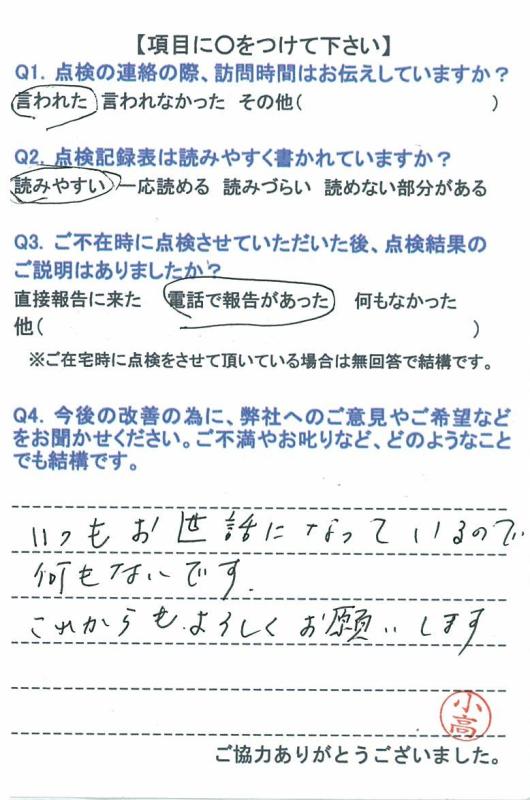 【項目に○をつけて下さい】
Q1. 点検の連絡の際、訪問時間はお伝えしていますか?
言われた 言われなかった その他( )
Q2. 点検記録表は読みやすく書かれていますか?
読みやすい 一応読める 読みづらい 読めない部分がある
Q3. ご不在時に点検させていただいた後、点検結果の
ご説明はありましたか?
直接報告に来た 電話で報告があった 何もなかった
他( )
※ご在宅時に点検をさせて頂いている場合は無回答で結構です。
Q4. 今後の改善の為に、弊社へのご意見やご希望など
をお聞かせください。ご不満やお叱りなど、どのようなこと
でも結構です。
いつもお世話になっているので
何もないです.
これからも よろしく お願いします
小高
ご協力ありがとうございました。